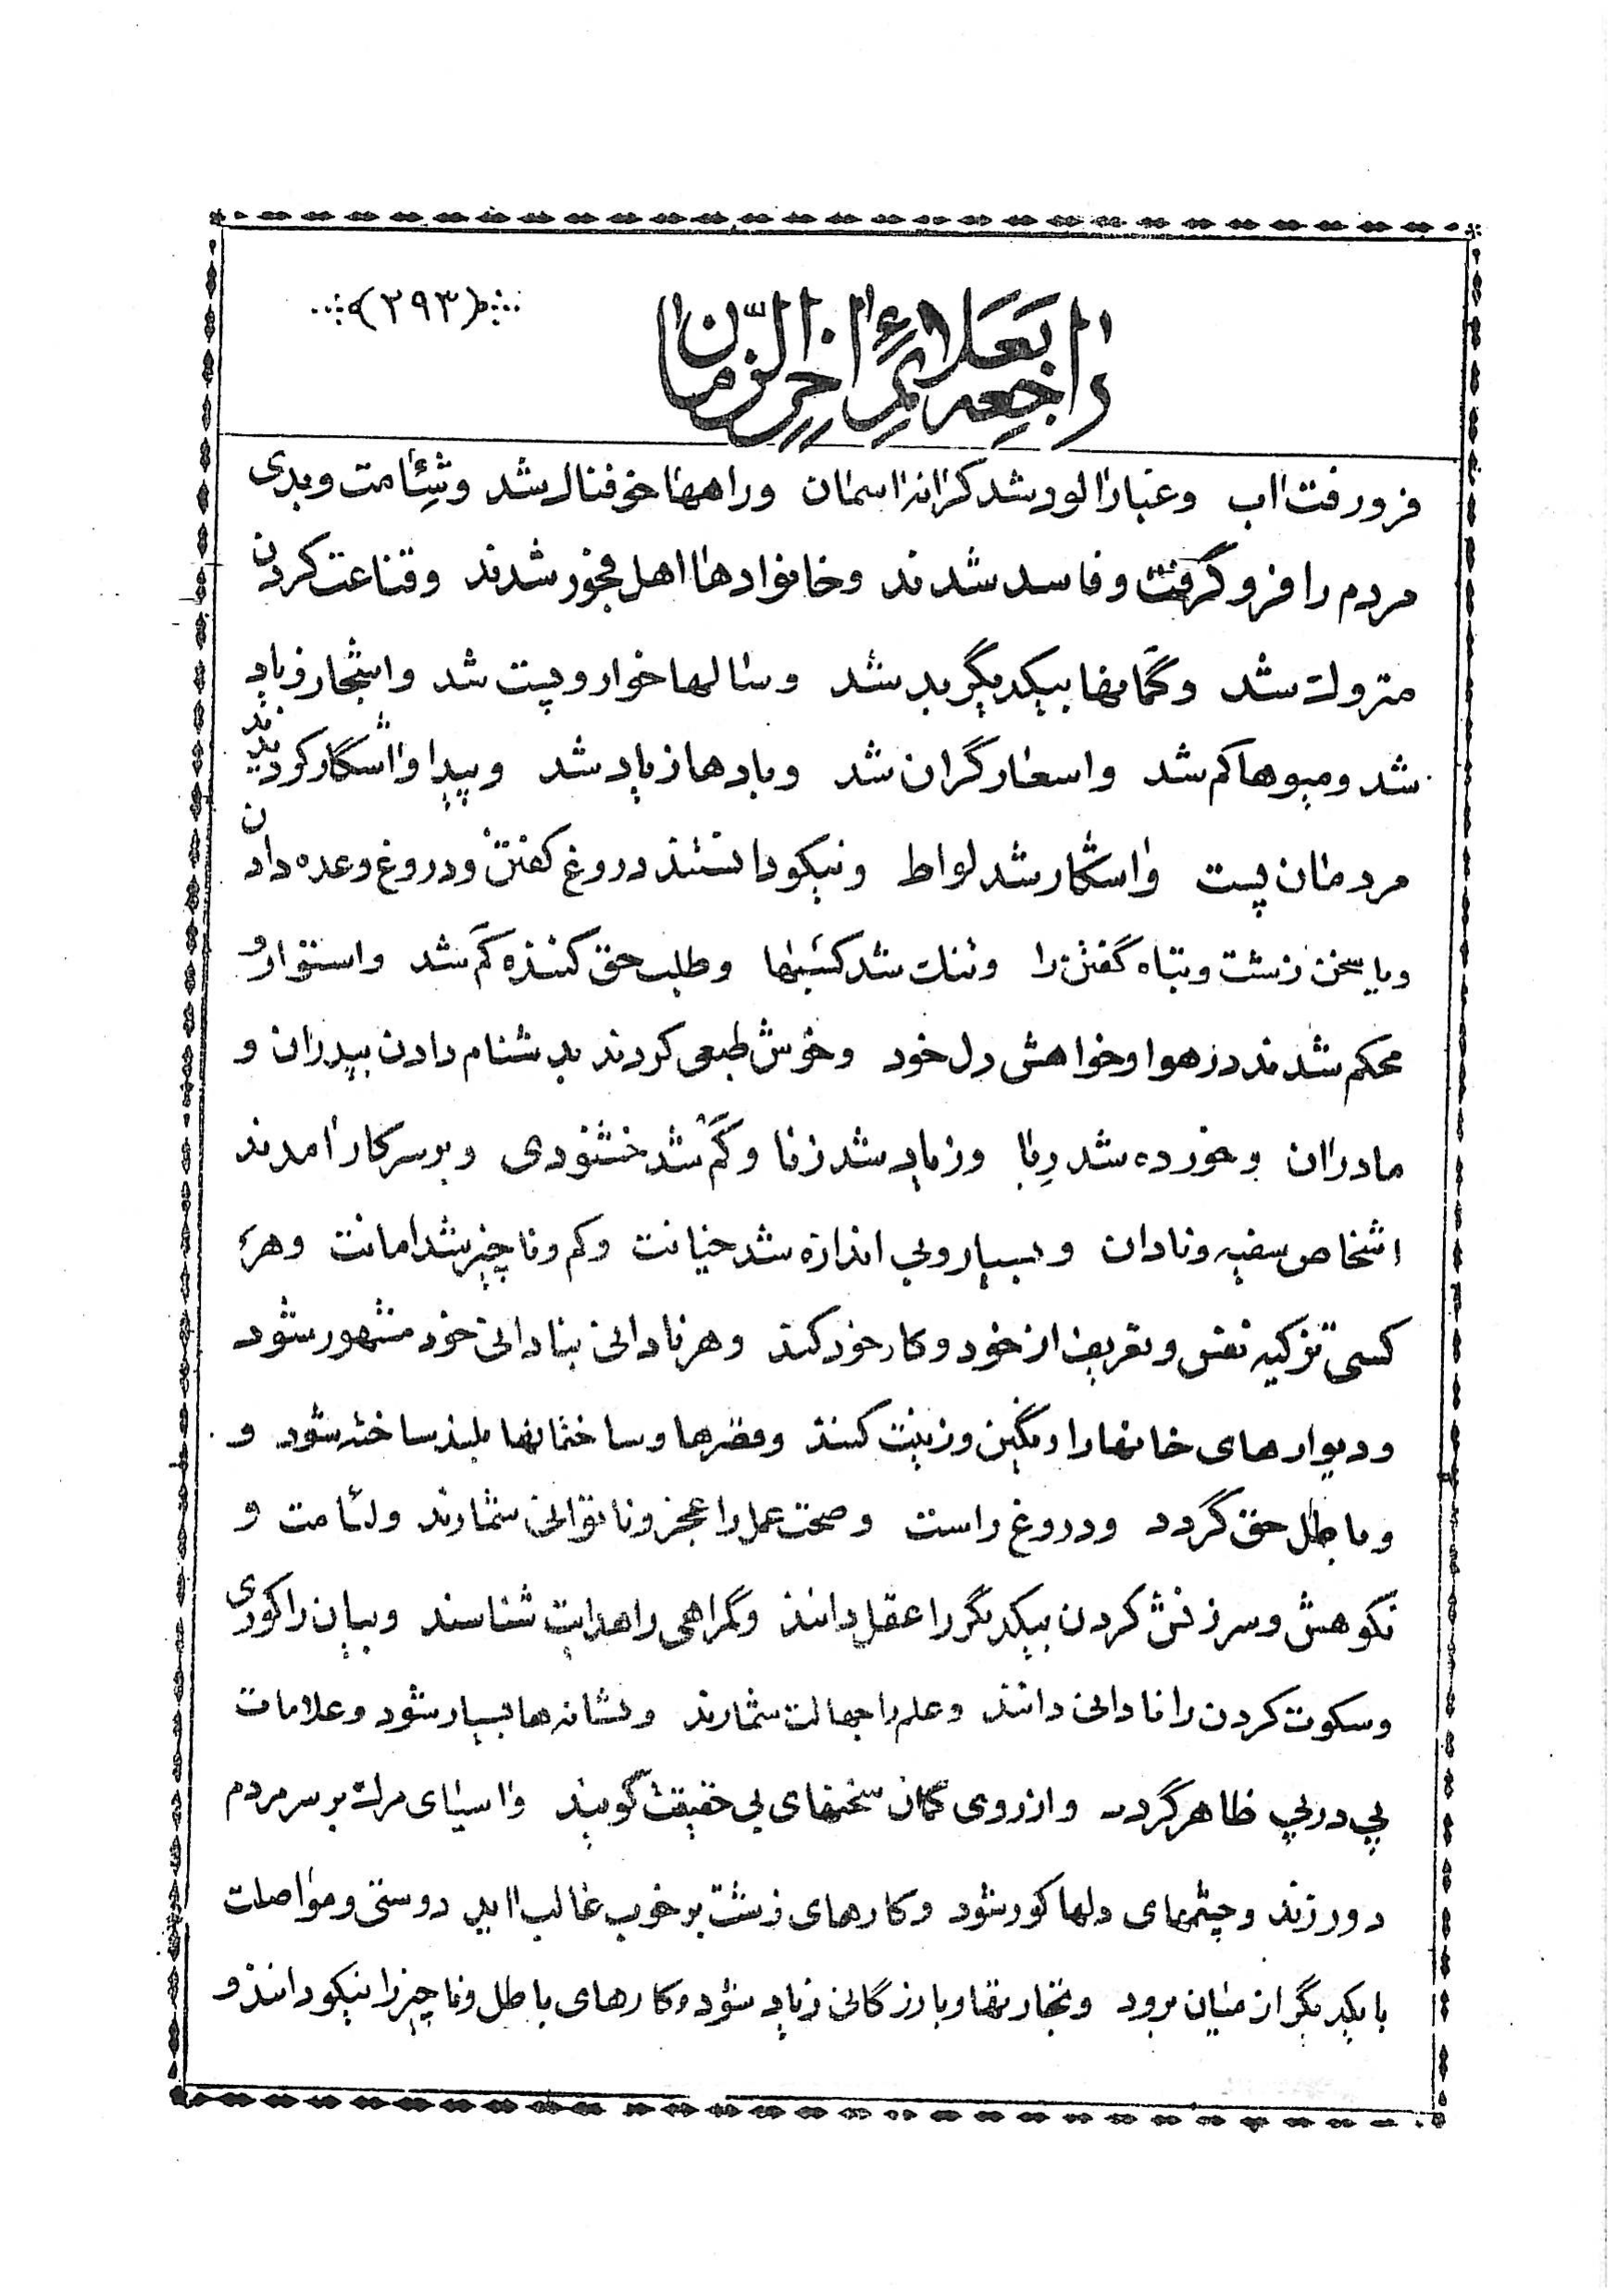 (۲۹۳)
راجعه بعلائم اخر الزّمان
فرو رفت اب وغبار الود شد کرانه اسمان وراهها خوفناك شد وشئامت وبدی
مردم را فرو گرفت وفاسد شدند وخانوادها اهل فجور شدند وقناعت کردن
متروك شد وگمانها بیکدیگر بد شد وسالها خوار وپست شد واشجار زیاد
شد ومیوها کم شد واسعار گران شد وبادها زیاد شد وپیدا واشکار کردیدند
مردمان پست واشکار شد لواط ونیکو دانستند دروغ گفتن ودروغ وعده دادن
ویا سخن زشت وتباه گفتن را وتنك شد کسبها وطلب حق کننده کم شد واستوار و
محکم شدند در هوا وخواهش دل خود وخوش طبعی کردند بدشنام دادن پدران و
مادران وخورده شد رِبا وزیاد شد زنا وکم شد خشنودی وبر سر کار امدند
اشخاص سفیه ونادان وبسیار وبی اندازه شد خیانت وکم وناچیز شد امانت وهر
کسی تزکیه نفس وتعریف از خود وکار خود کند وهر نادانی بنادانی خود مشهور شود
ودیوارهای خانهارا رنگین وزینت کنند وقصرها وساختمانها بلند ساخته شود و
وباطل حق گردد ودروغ راست وصحت عمل را عجز وناتوانی شمارند ولئامت و
نکوهش وسرزنش کردن بیکدیگر را عقل دانند وگمراهی را هدایت شناسند وبیان را کوری
وسکوت کردن را نادانی دانند وعلم را جهالت شمارند ونشانه ها بسیار شود وعلامات
پی در پی ظاهر گردد وازروی گمان سخنهای بی حقیقت گویند واسیای مرك بر سر مردم
دور زند وچشمهای دلها کور شود وکارهای زشت بر خوب غالب اید دوستی ومواصلت
بایکدیگر از میان برود وتجارتها وبازرگانی زیاد شود وکارهای باطل وناچیز را نیکو دانند و